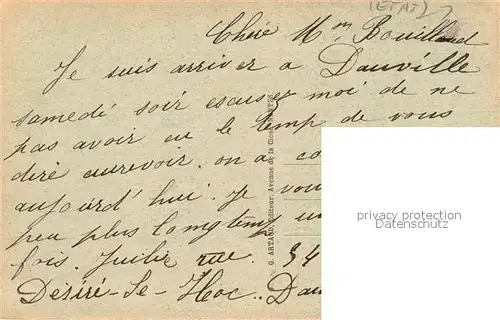 (ETAT)
Chère Mm Bouilland
Je suis arriver a Dauville
samedé soir escuser moi de ne
pas avoir eu le temp de vous
dire aurevoir. on a
aujourd'hui. Je vou
peu plus longtemp un
fois. Juilie rue. 34
Désiré-le-Hoc.. Dau
G. ARTAUD, Éditeur, Avenue de la Close, NANTES
privacy protection
Datenschutz